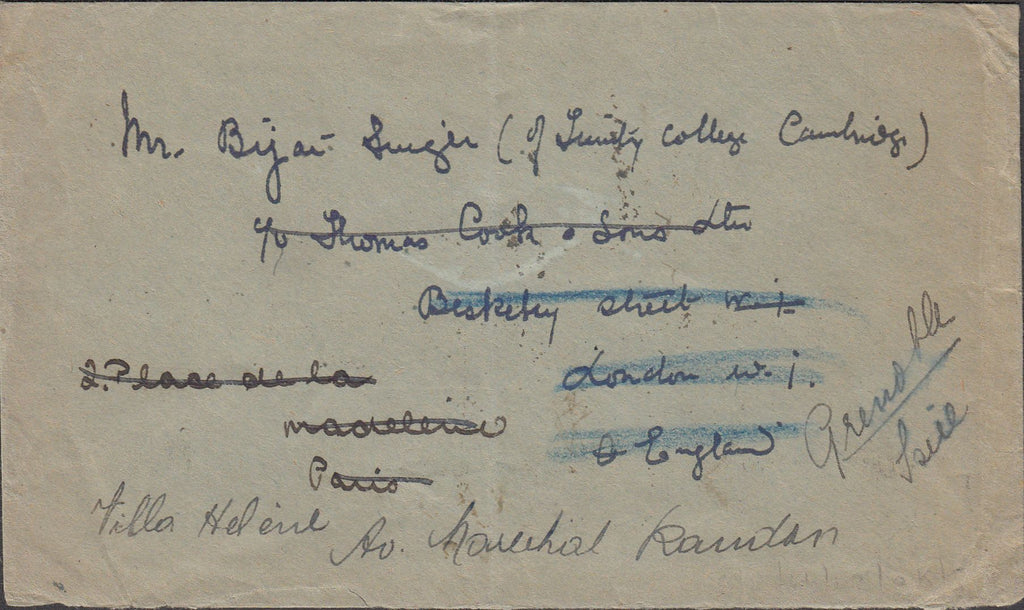 Mr. Bijai Singh (of Trinity College Cambridge)
c/o Thomas Cook & Sons Ltd
Berkeley street W.1.
London W.1.
England
2. Place de la
madeleine
Paris
Grenoble
Isère
Villa Hélène Av. Maréchal Randon